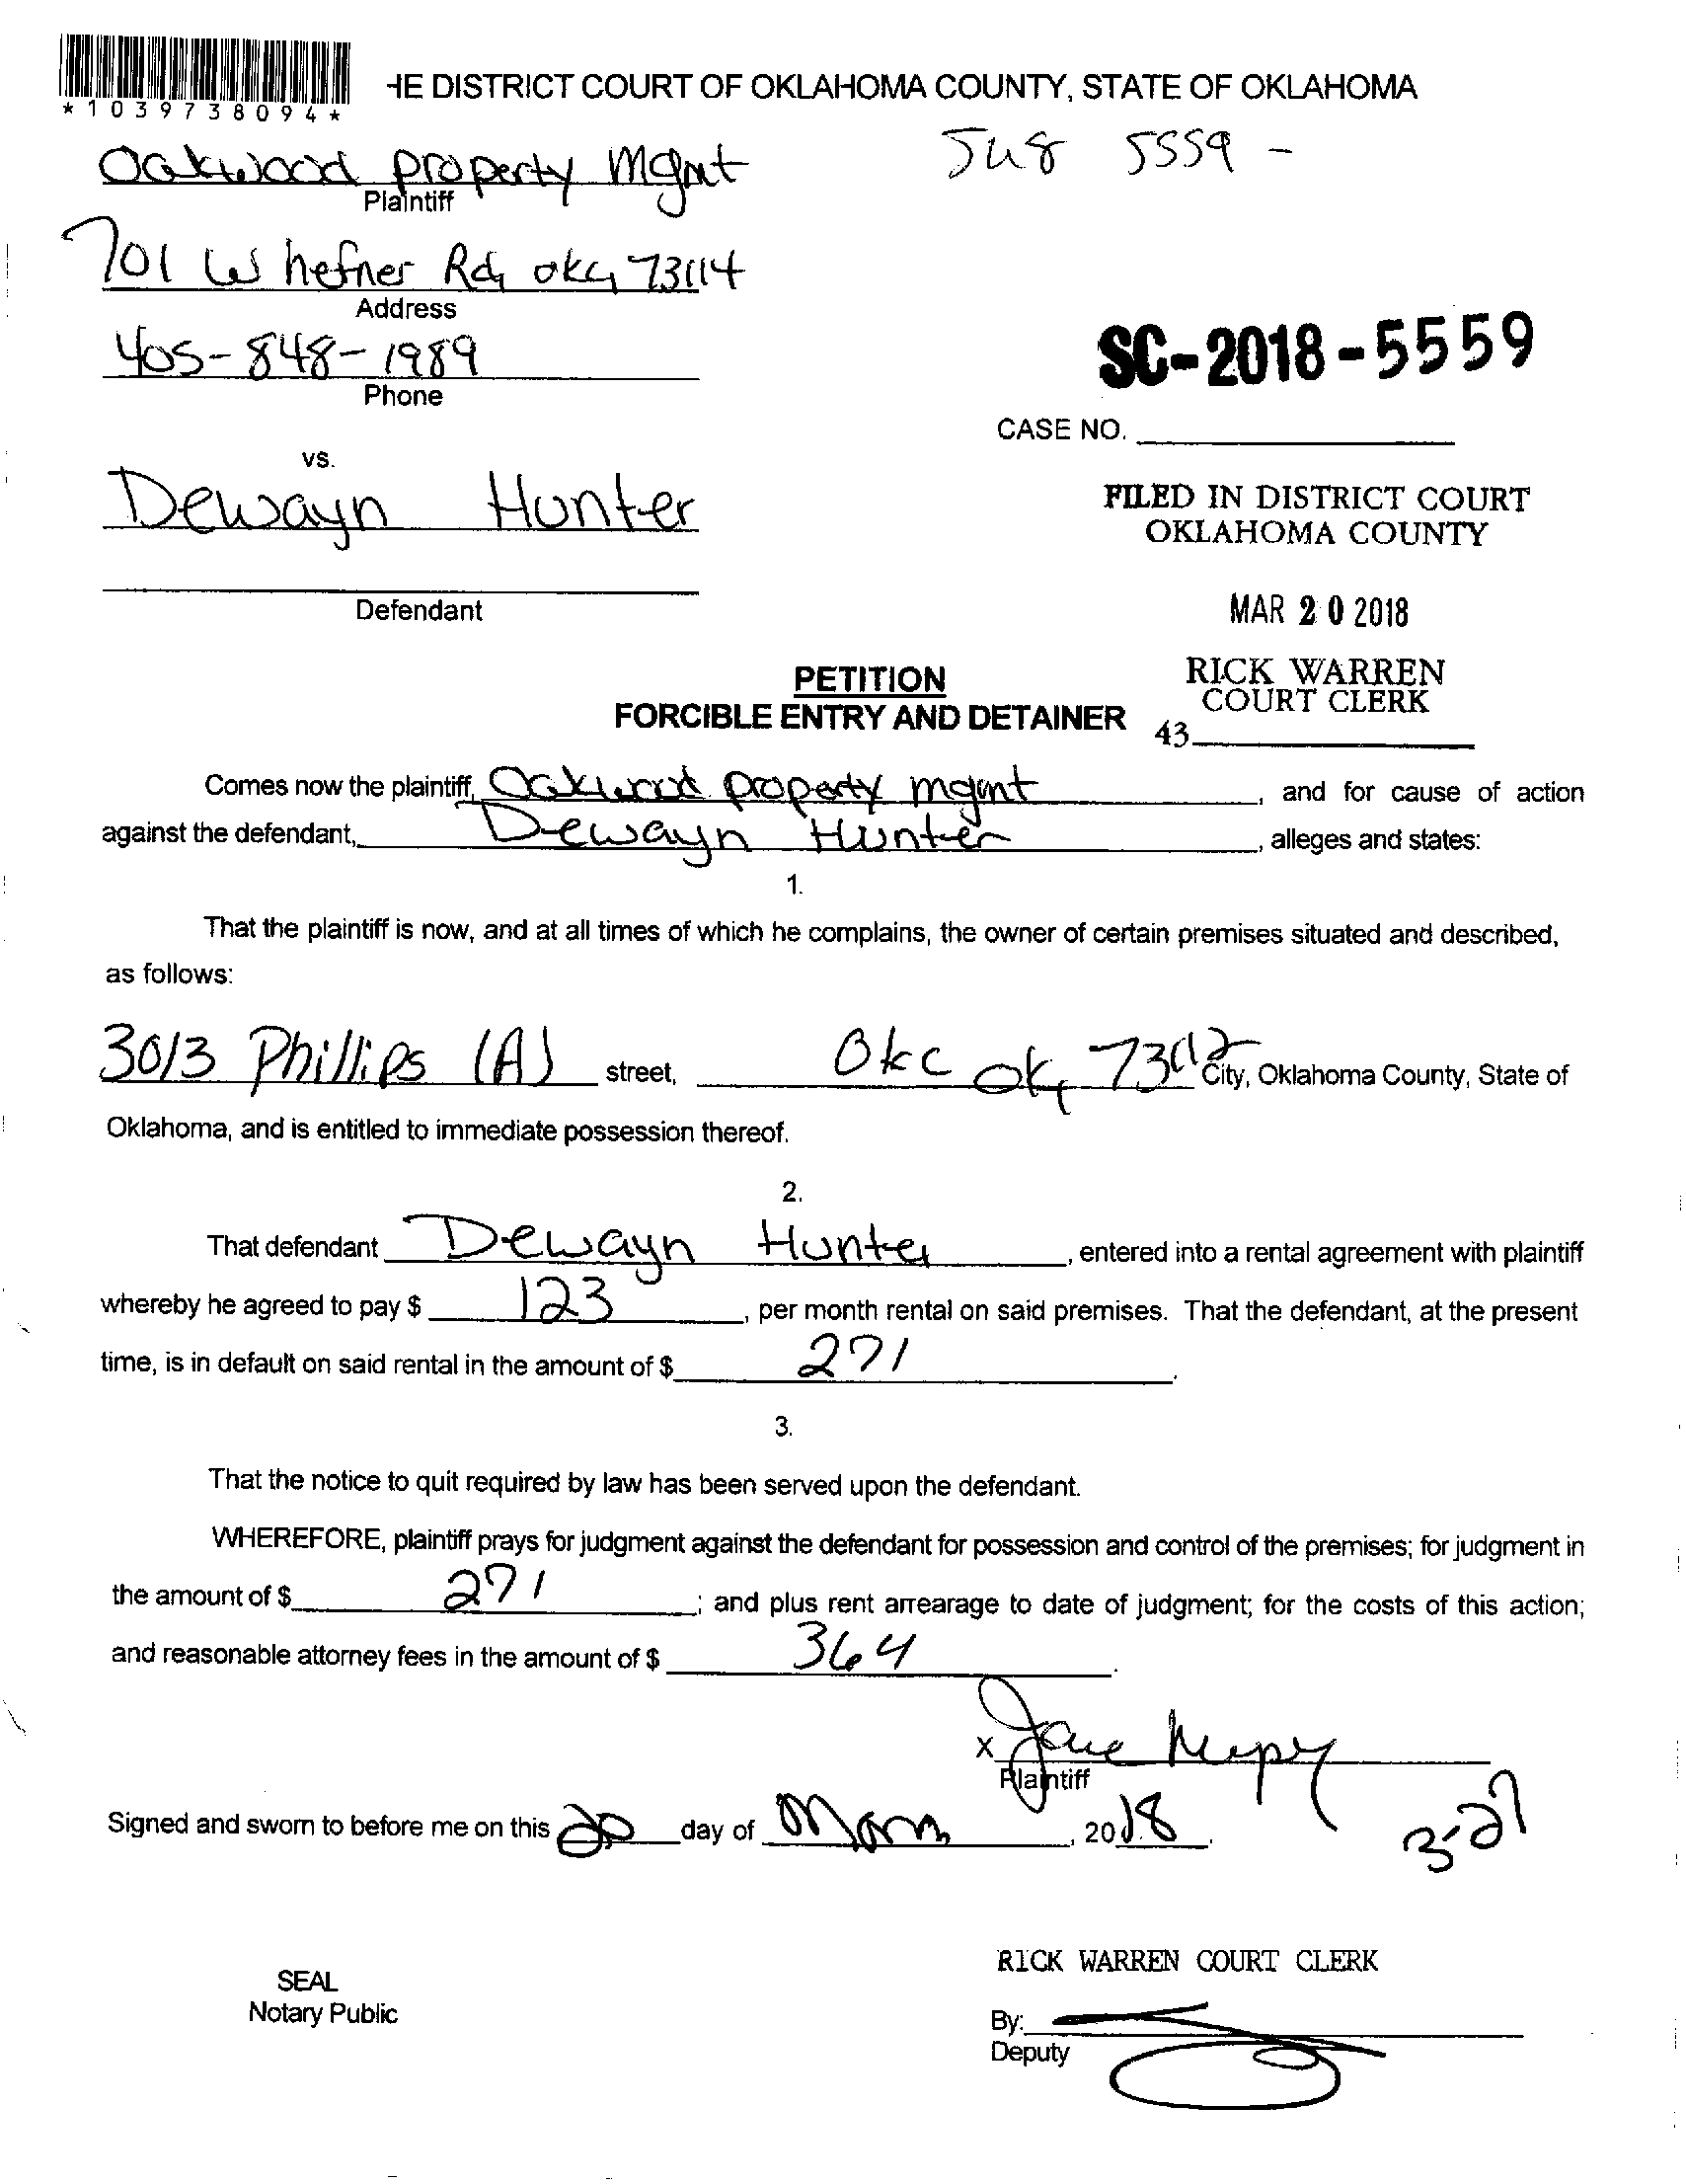 *1039738094*
HE DISTRICT COURT OF OKLAHOMA COUNTY, STATE OF OKLAHOMA
Oakwood property Mgmt
5559 -
Plaintiff
701 W hefner Rd, okc, 73114
Address
405-848-1989
Phone
SC-2018-5559
CASE NO.
vs.
Dewayn Hunter
FILED IN DISTRICT COURT
OKLAHOMA COUNTY
Defendant
MAR 20 2018
PETITION
FORCIBLE ENTRY AND DETAINER
RICK WARREN
COURT CLERK
43
Comes now the plaintiff, Oakwood property mgmt, and for cause of action
against the defendant, Dewayn Hunter, alleges and states:
1.
That the plaintiff is now, and at all times of which he complains, the owner of certain premises situated and described,
as follows:
3013 Phillips (A) street, Okc ok, 73112 City, Oklahoma County, State of
Oklahoma, and is entitled to immediate possession thereof.
2.
That defendant Dewayn Hunter, entered into a rental agreement with plaintiff
whereby he agreed to pay $ 123, per month rental on said premises. That the defendant, at the present
time, is in default on said rental in the amount of $ 271.
3.
That the notice to quit required by law has been served upon the defendant.
WHEREFORE, plaintiff prays for judgment against the defendant for possession and control of the premises; for judgment in
the amount of $ 271; and plus rent arrearage to date of judgment; for the costs of this action;
and reasonable attorney fees in the amount of $ 364.
x
Plaintiff
Signed and sworn to before me on this 20 day of , 2018.
3-27
RICK WARREN COURT CLERK
SEAL
Notary Public
By:
Deputy